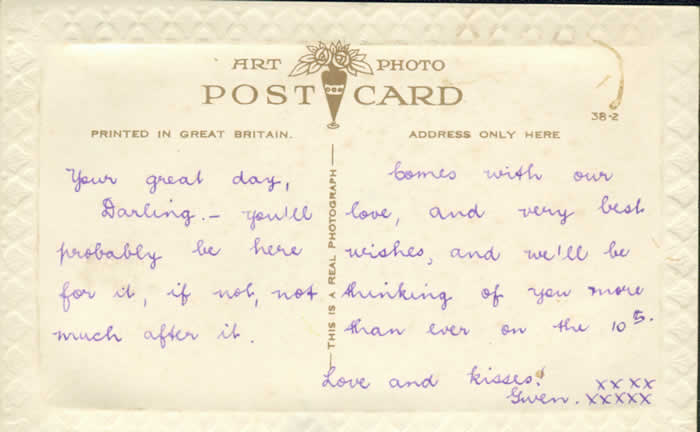 ART PHOTO
POST CARD
38-2
PRINTED IN GREAT BRITAIN.
ADDRESS ONLY HERE
THIS IS A REAL PHOTOGRAPH
Your great day,
Darling. – you'll
probably be here
for it, if not, not
much after it.
Comes with our
love, and very best
wishes, and we'll be
thinking of you more
than ever on the 10th.
Love and kisses. xxxx
Gwen. xxxxx